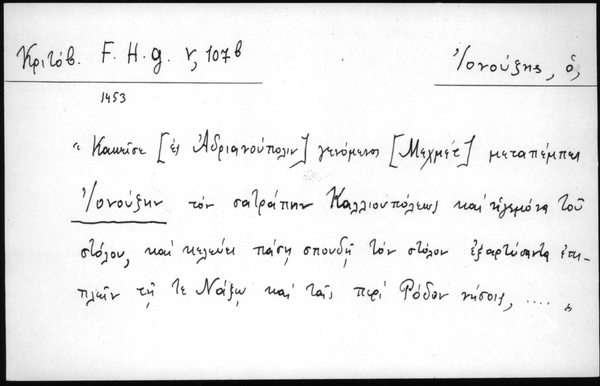 Κριτόβ. F. H. g. V, 107b
Ἰονούζης, ὁ,
1453
"Κακεῖσε [εἰς Ἀδριανούπολιν] γενόμενος [Μεχμέτ] μεταπέμπει
Ἰονούζην τὸν σατράπην Καλλιουπόλεως καὶ ἡγεμόνα τοῦ
στόλου, καὶ κελεύει πάσῃ σπουδῇ τὸν στόλον ἐξαρτύσαντα ἐπι-
πλεῖν τῇ τε Νάξῳ καὶ ταῖς περὶ Ῥόδον νήσοις, .... "